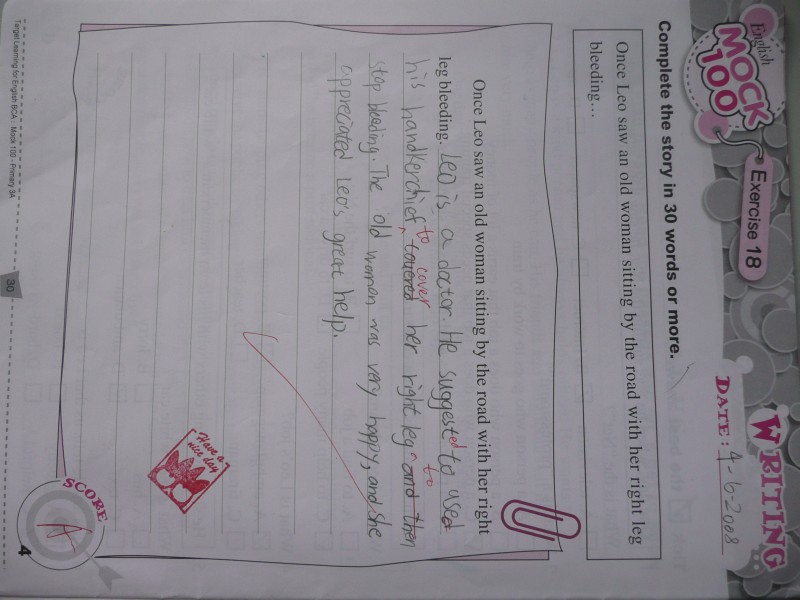 English
MOCK
100
Exercise 18
WRITING
DATE: 4-6-2008
Complete the story in 30 words or more.
Once Leo saw an old woman sitting by the road with her right leg
bleeding...
Once Leo saw an old woman sitting by the road with her right
leg bleeding. Leo is a doctor. He suggested to used
his handkerchief to cover covered her right leg to and then
stop bleeding. The old woman was very happy, and she
appreciated Leo's great help.
Have a
nice day
SCORE
A
4
Target Learning for English BCA · Mock 100 - Primary 3A
30